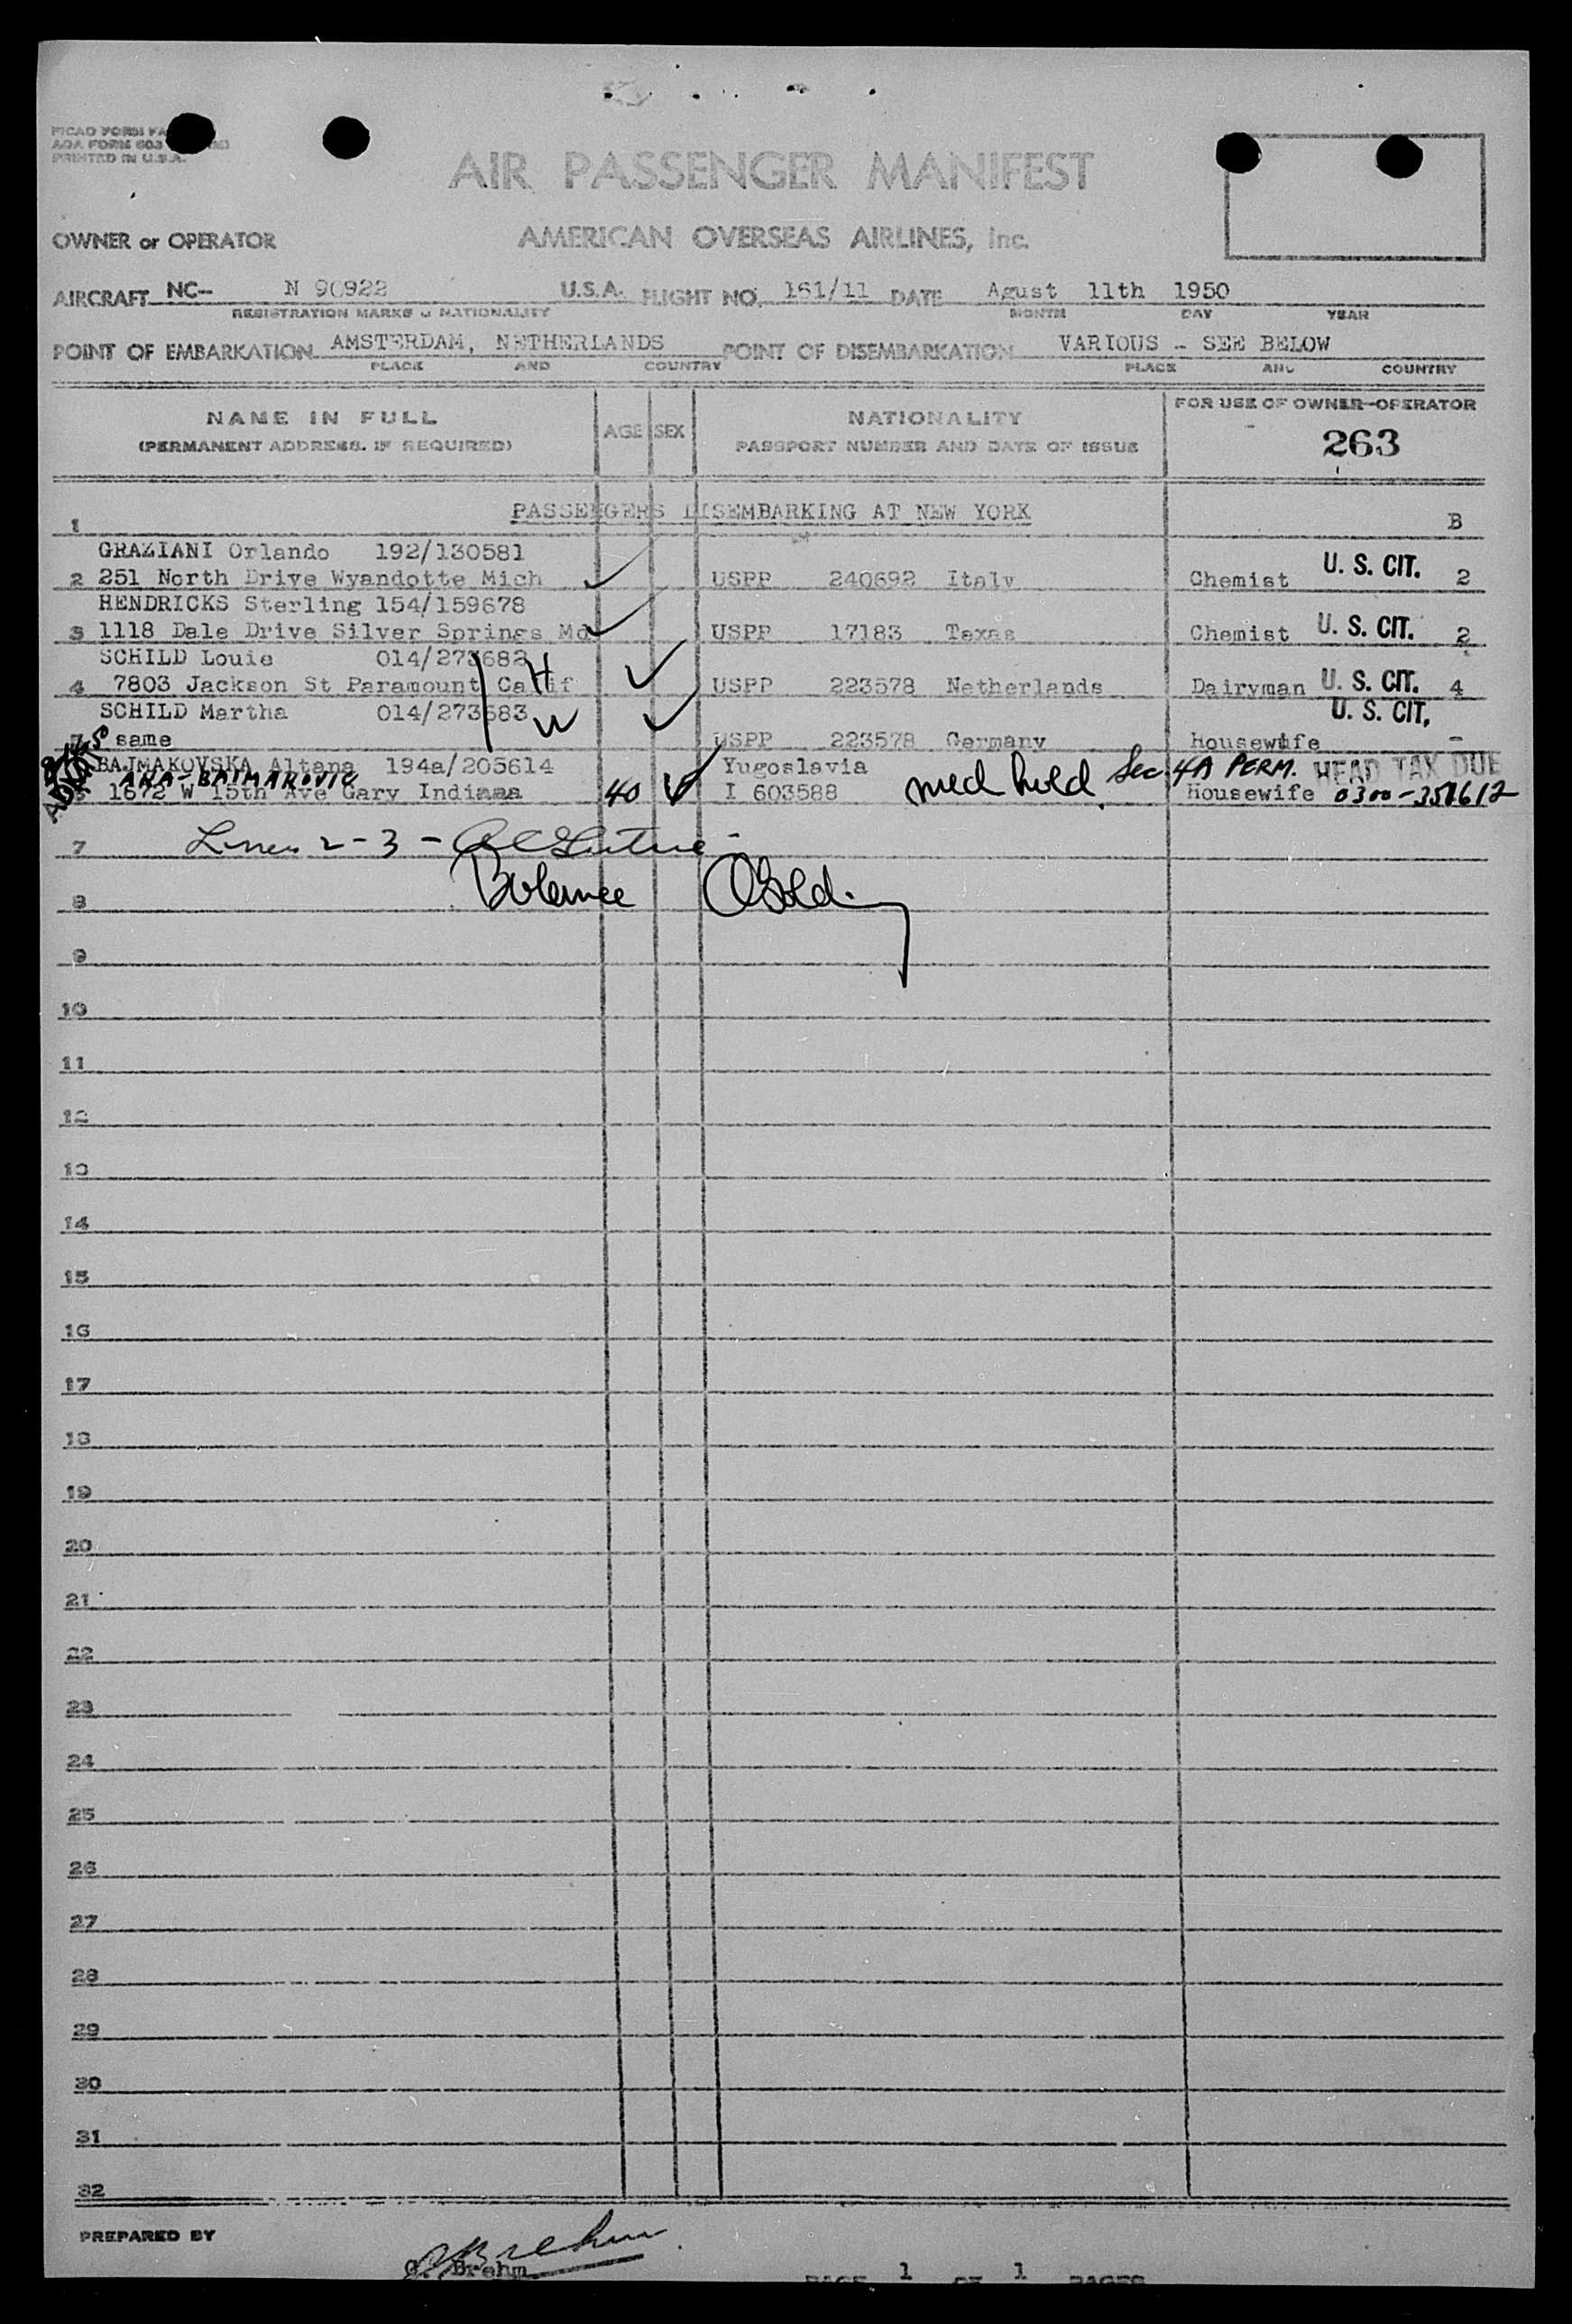 AIR PASSENGER MANIFEST
PRINTED IN U.S.A.
OWNER or OPERATOR AMERICAN OVERSEAS AIRLINES, Inc.
AIRCRAFT NC- N 90922 U.S.A. FLIGHT NO. 161/11 DATE Agust 11th 1950
REGISTRATION MARKS & NATIONALITY MONTH DAY YEAR
POINT OF EMBARKATION AMSTERDAM, NETHERLANDS POINT OF DISEMBARKATION VARIOUS - SEE BELOW
PLACE AND COUNTRY PLACE AND COUNTRY
NAME IN FULL AGE SEX NATIONALITY FOR USE OF OWNER-OPERATOR
(PERMANENT ADDRESS, IF REQUIRED) PASSPORT NUMBER AND DATE OF ISSUE 263
1 PASSENGERS DISEMBARKING AT NEW YORK B
GRAZIANI Orlando 192/130581
2 251 North Drive Wyandotte Mich USPP 240692 Italy Chemist U. S. CIT. 2
HENDRICKS Sterling 154/159678
3 1118 Dale Drive Silver Springs Md USPP 17183 Texas Chemist U. S. CIT. 2
SCHILD Louie 014/273682 H
4 7803 Jackson St Paramount Calif USPP 223578 Netherlands Dairyman U. S. CIT. 4
SCHILD Martha 014/273683 W U. S. CIT.
same USPP 223578 Germany Housewife -
BAJMAKOVSKA Altana 194a/205614 Yugoslavia Sec. 4A PERM. HEAD TAX DUE
ANA-BAIMAKOVIC
1672 W 15th Ave Gary Indiana 40 I 603588 med held Housewife 0300-351612
7 Lines 2-3 -
8 Balance
9
10
11
12
13
14
15
16
17
18
19
20
21
22
23
24
25
26
27
28
29
30
31
32
PREPARED BY
Brehm
PAGE 1 OF 1 PAGES